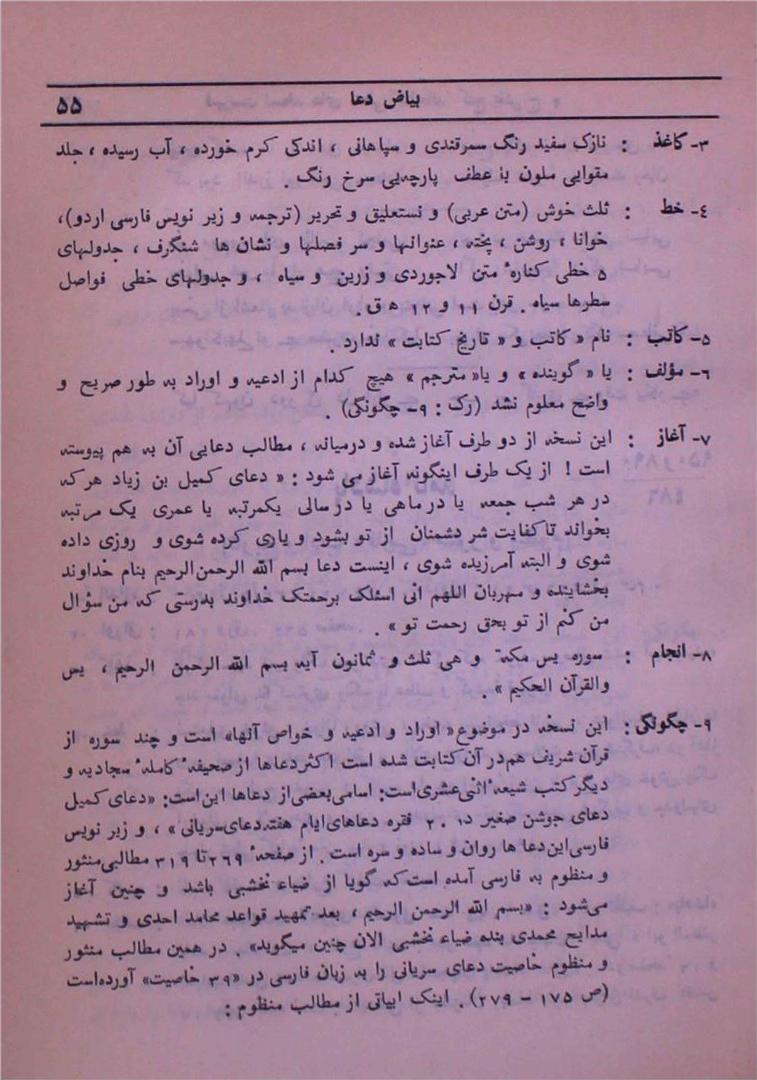 بیاض دعا ۵۵
۳- کاغذ : نازک سفید رنگ سمرقندی و سپاهانی ، اندکی کرم خورده ، آب رسیده ، جلد
مقوایی ملون با عطف پارچه‌یی سرخ رنگ .
٤- خط : ثلث خوش (متن عربی) و نستعلیق و تحریر (ترجمه و زیر نویس فارسی اردو)،
خوانا ، روشن ، پخته ، عنوانها و سر فصلها و نشان ها شنگرف ، جدولهای
۵ خطی کنارهٔ متن لاجوردی و زرین و سیاه ، و جدولهای خطی فواصل
سطرها سیاه . قرن ۱۱ و ۱۲ ه ق .
۵- کاتب : نام « کاتب و « تاریخ کتابت » ندارد .
۶- مؤلف : یا « گوینده » و یا« مترجم » هیچ کدام از ادعیه و اوراد به طور صریح و
واضح معلوم نشد (رک : ۹- چگونگی) .
۷- آغاز : این نسخه از دو طرف آغاز شده و درمیانه ، مطالب دعایی آن به هم پیوسته
است ! از یک طرف اینگونه آغاز می شود : « دعای کمیل بن زیاد هرکه
در هر شب جمعه یا در ماهی یا در سالی یکمرتبه یا عمری یک مرتبه
بخواند تا کفایت شر دشمنان از تو بشود و یاری کرده شوی و روزی داده
شوی و البته آمرزیده شوی ، اینست دعا بسم الله الرحمن الرحیم بنام خداوند
بخشاینده و مهربان اللهم انی اسئلک برحمتک خداوند بدرستی که من سؤال
من کنم از تو بحق رحمت تو » .
۸- انجام : سوره یس مکیة و هی ثلث و ثمانون آیه بسم الله الرحمن الرحیم ، یس
والقرآن الحکیم » .
۹- چگونگی : این نسخه در موضوع « اوراد و ادعیه و خواص آنها» است و چند سوره از
قرآن شریف هم در آن کتابت شده است اکثر دعاها از صحیفهٔ کاملهٔ سجادیه و
دیگر کتب شیعهٔ اثنی عشری است: اسامی بعضی از دعاها این است: «دعای کمیل
دعای جوشن صغیر در ۲۰ فقره دعاهای ایام هفته دعای سریانی» ، و زیر نویس
فارسی این دعا ها روان و ساده و سره است . از صفحهٔ ۲۶۹ تا ۳۱۹ مطالبی منثور
و منظوم به فارسی آمده است که گویا از ضیاء نخشبی باشد و چنین آغاز
می‌شود : «بسم الله الرحمن الرحیم ، بعد تمهید قواعد محامد احدی و تشهید
مدایح محمدی بنده ضیاء نخشبی الان چنین میگوید» . در همین مطالب منثور
و منظوم خاصیت دعای سریانی را به زبان فارسی در «۳۹ خاصیت» آورده‌است
(ص ۱۷۵ - ۲۷۹) . اینک ابیاتی از مطالب منظوم :